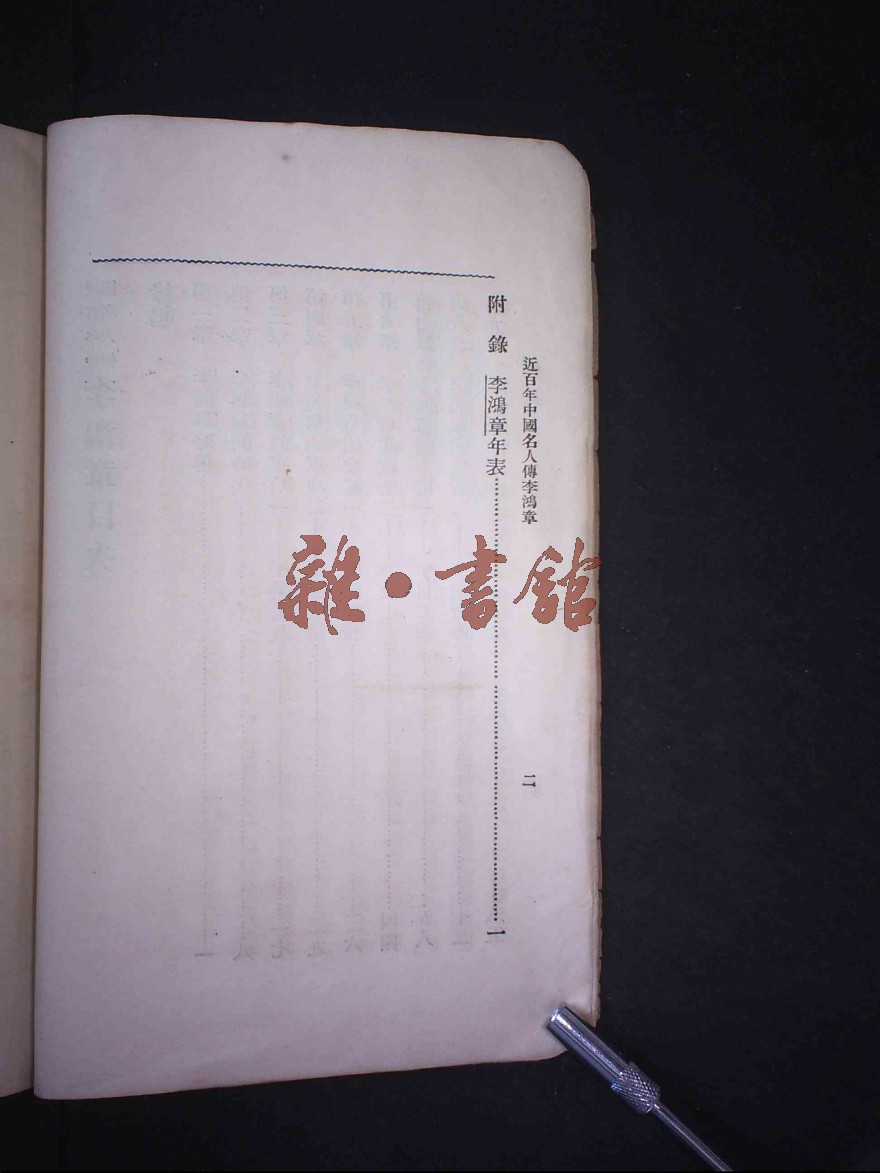 近百年中國名人傳李鴻章
二
附錄 李鴻章年表……一
雜·書館